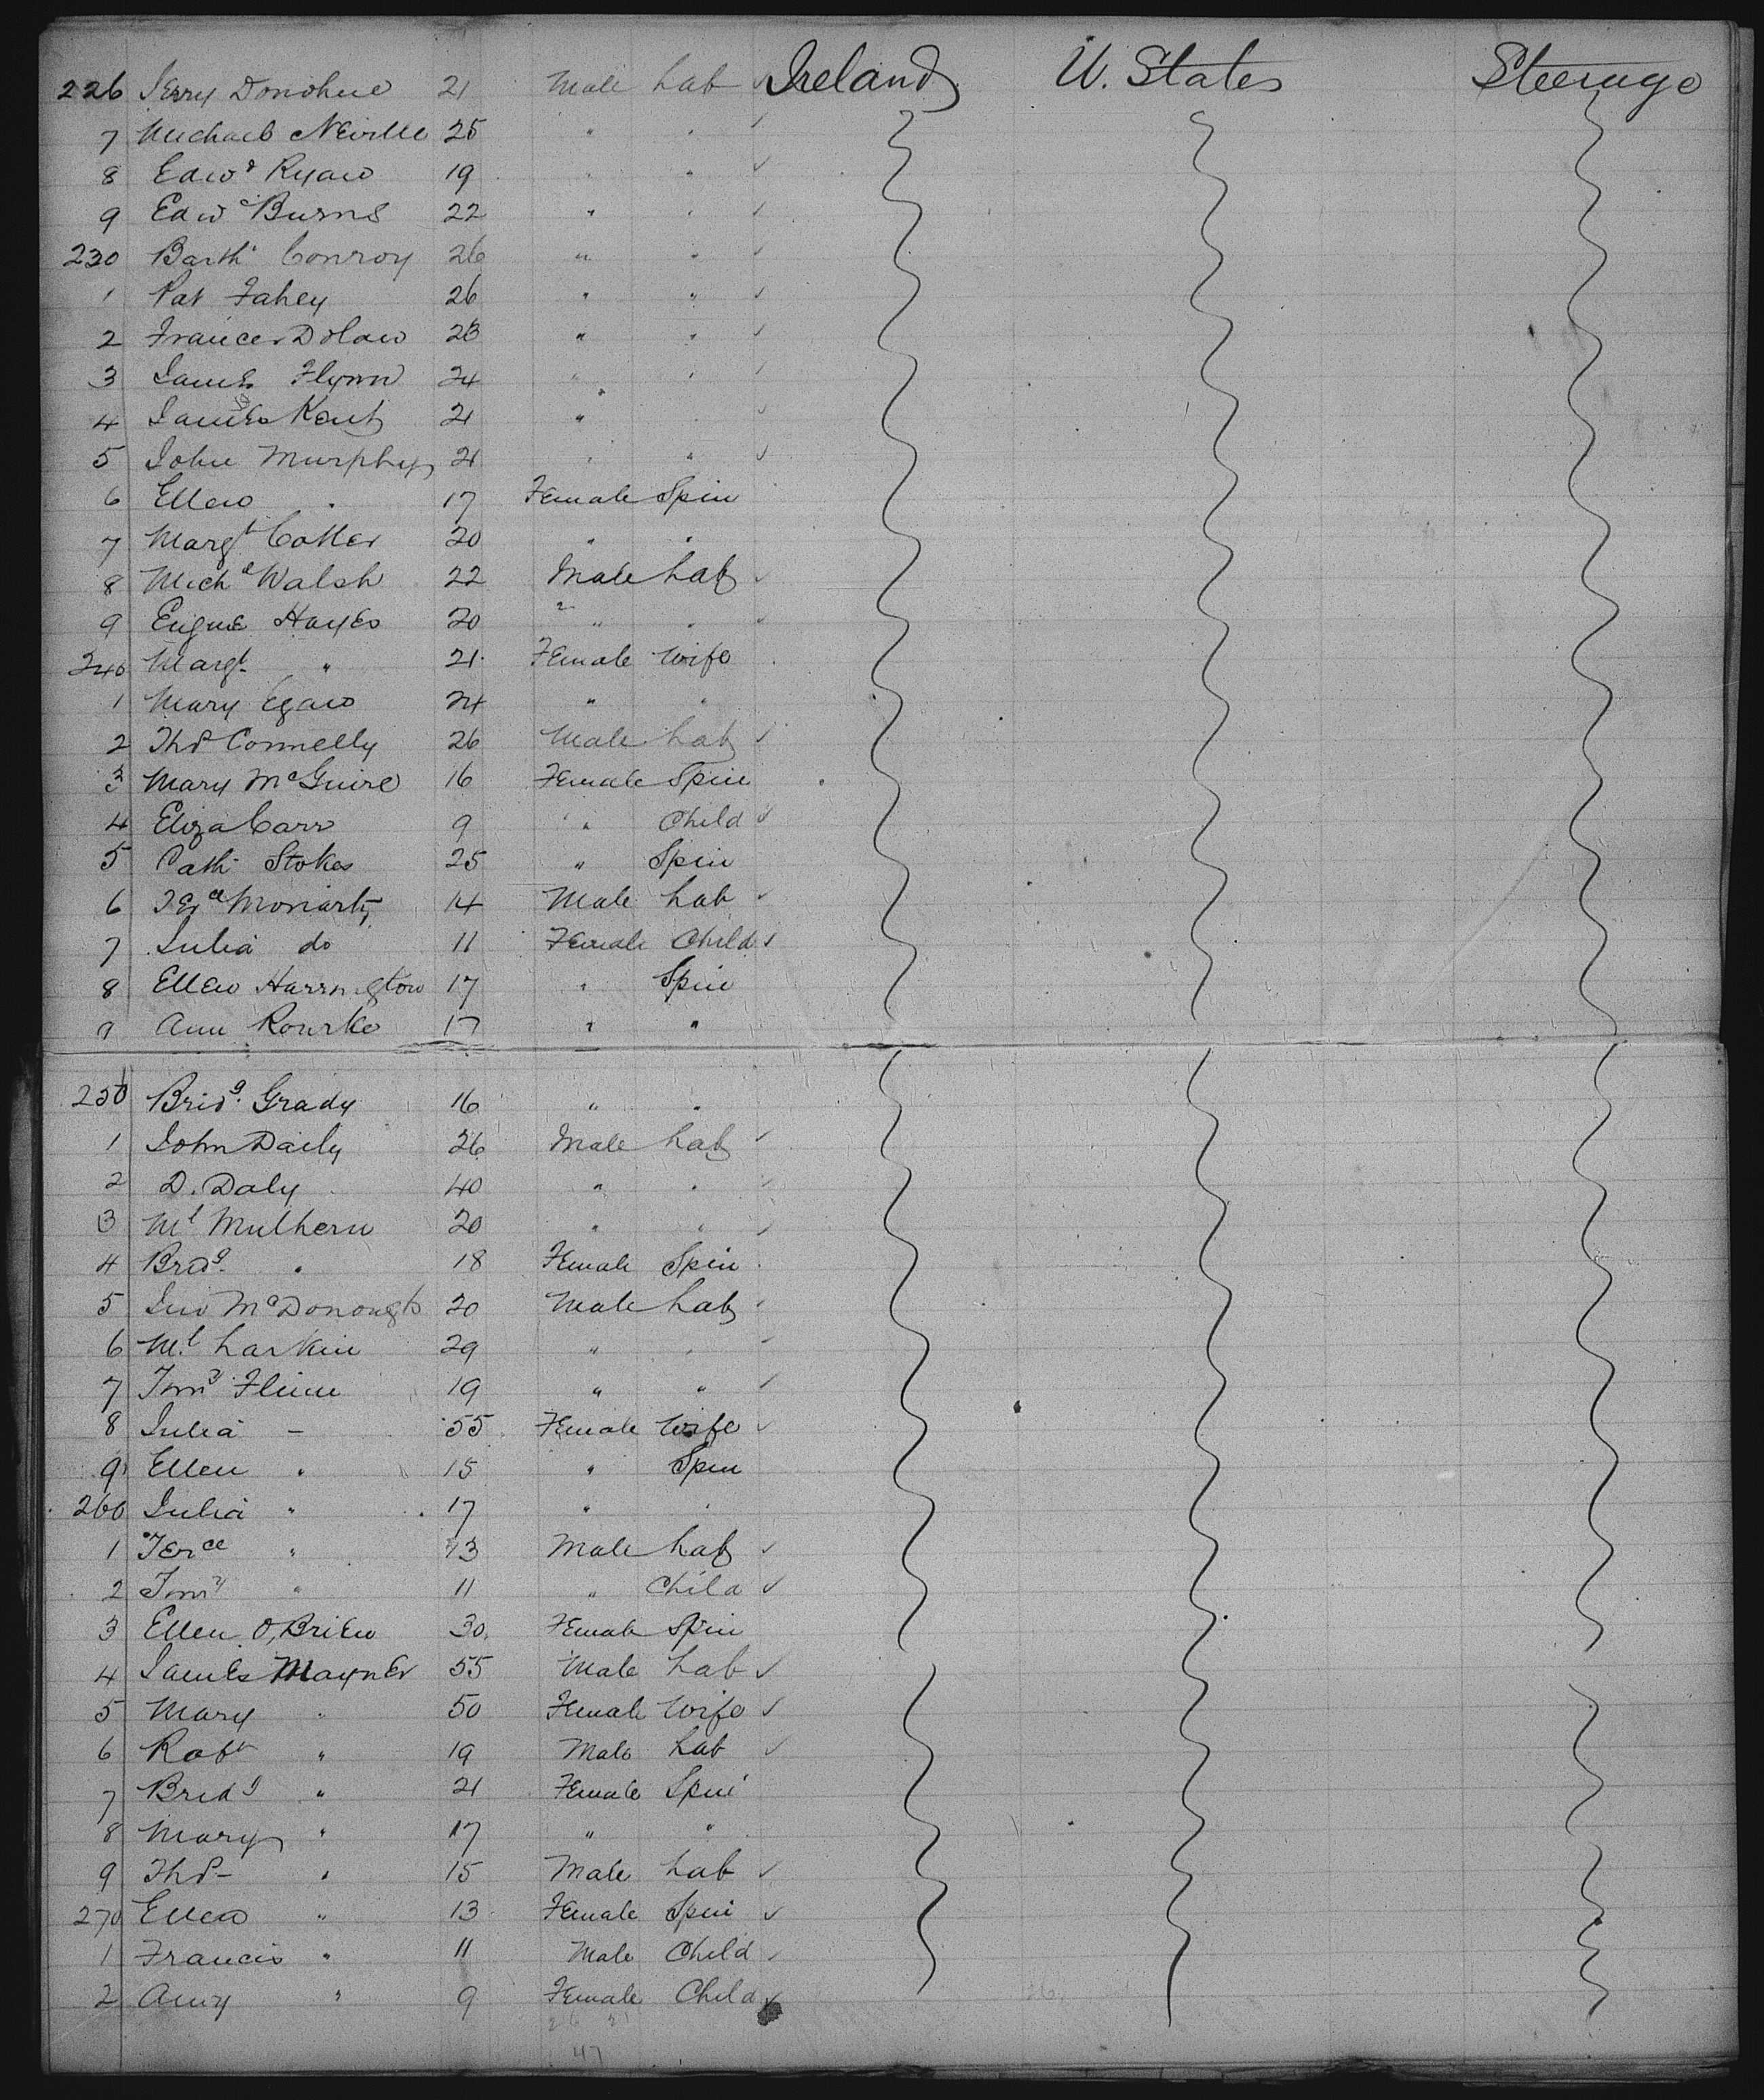 226 Jerry Donohue 21 Male Lab ✓ Ireland U. States Steerage
7 Michael Neville 25 " " ✓
8 Edwd Ryan 19 " " ✓
9 Edwd Burns 22 " " ✓
230 Barthw Conroy 26 " " ✓
1 Pat Fahey 26 " " ✓
2 Frances Dolan 28 " " ✓
3 James Flynn 24 " " ✓
4 James Kent 21 " " ✓
5 John Murphy 21 " " ✓
6 Ellen " 17 Female Spin
7 Margt Cotter 20 " "
8 Michl Walsh 22 Male Lab ✓
9 Eugne Hayes 20 " " ✓
240 Margt " 21 Female Wife
1 Mary Egan 24 " "
2 Thos Connelly 26 Male Lab ✓
3 Mary McGuire 16 Female Spin
4 Eliza Carr 9 " Child ✓
5 Cath Stokes 25 " Spin
6 Moriarty 14 Male Lab ✓
7 Julia do 11 Female Child ✓
8 Ellen Harrington 17 " Spin
9 Ann Rourke 17 " "
250 Bridg. Grady 16 " "
1 John Daily 26 Male Lab ✓
2 D. Daly 40 " " ✓
3 Ml Mulhern 20 " " ✓
4 Bridg. " 18 Female Spin
5 Jno McDonough 20 Male Lab ✓
6 Ml Larkin 29 " " ✓
7 Timy Flinn 19 " " ✓
8 Julia - 55 Female Wife ✓
9 Ellen " 15 " Spin
260 Julia " 17 " "
1 Terce " 13 Male Lab ✓
2 Timy " 11 " Child ✓
3 Ellen O,Brien 30 Female Spin
4 James Mayner 55 Male Lab ✓
5 Mary " 50 Female Wife ✓
6 Robt " 19 Male Lab ✓
7 Bridg " 21 Female Spin
8 Mary " 17 " "
9 Thos " 15 Male Lab ✓
270 Ellen " 13 Female Spin ✓
1 Francis " 11 Male Child ✓
2 Amy " 9 Female Child ✓
26 21
47